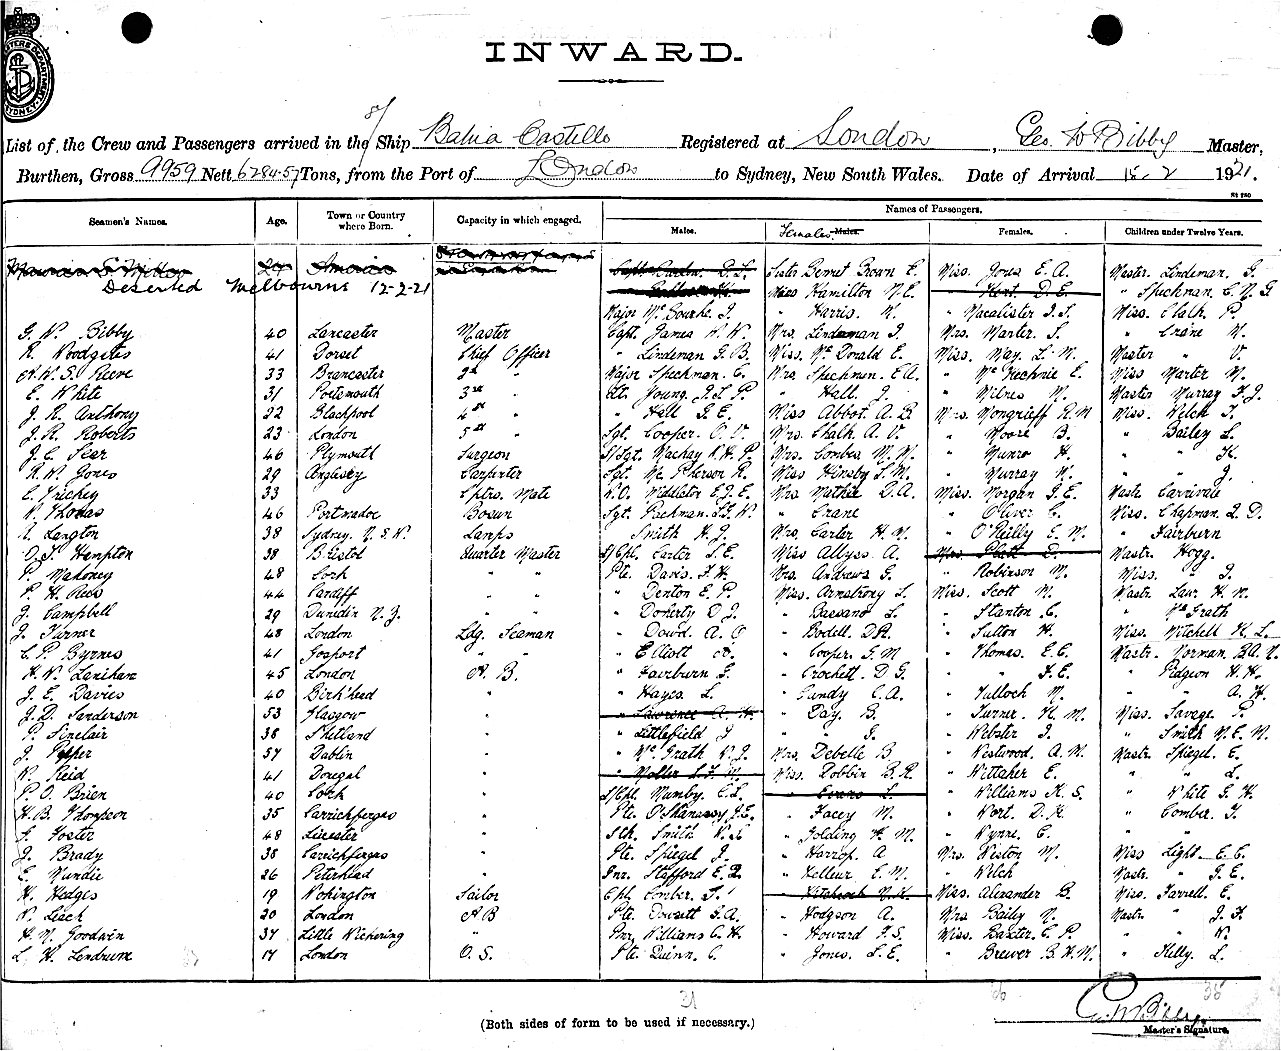 INWARD.
List of the Crew and Passengers arrived in the S/ Ship Bahia Castello Registered at London, Geo. W Bibby Master,
Burthen, Gross 9959 Nett 6284.57 Tons, from the Port of London to Sydney, New South Wales. Date of Arrival 15-2 1921.
Seamen's Names. Age. Town or Country where Born. Capacity in which engaged. Names of Passengers.
Males. Females Males. Females. Children under Twelve Years.
Sister Bennet Brown E. Miss. Jones E. A. Master. Lindeman. G.
Deserted Melbourne 12-2-21 Miss Hamilton N. E. Hort D. E. " Speckman. C. N. G
Major McBourke. J. " Harris. N. " Macalister J. S. Miss. Clalk P.
G. W. Bibby 40 Lancaster Master Capt. James W. W. Mrs. Lindeman J. Mrs. Marter. S. " Crane N.
R. Woodgates 41 Dorset Chief Officer " Lindeman G. B. Miss. McDonald E. Miss. May. L. M. Master " V.
A. W. S. Reeve 33 Brancaster 2nd " Major Speckman. C. Mrs Speckman. E. A. " McKechnie E. Miss Marter M.
E. White 31 Portsmouth 3rd " Lt. Young. J. L. P. " Hall. J. " Milnes N. Master Murray F. J.
J. R. Anthony 22 Blackpool 4th " " Hall G. E. Miss Abbot. A. B Mrs. Mongrieff R. M Miss. Welch J.
J. R. Roberts 23 London 5th " Sgt. Cooper. O. V. Mrs. Chalk A. V. " Moore B. " Bailey L.
J. C. Sear 46 Plymouth Surgeon S/Sgt. Mackay K. H. P. Mrs. Combes M. M. " Munro H. " " K.
R. W. Jones 29 Anglesey Carpenter Sgt. McPherson R. Miss Hinsby L. M. " Murray N. " " J.
E. Vrickey 33 Cptrs. Mate W.O. Middleton E. J. E. Mrs Mathie D. A. Miss. Morgan G. E. Mastr Carrivale
W. Thomas 46 Portmadoc Bosun Sgt. Packman. " Crane " Oliver E. Miss. Chapman. L. D.
A. Langton 38 Sydney. N. S. W. Lamps Smith H. J. Mrs. Carter H. M. " O'Reilly E. M. " Fairburn
O. J. Hampton 38 Bristol Quarter Master S/Cpl. Carter S. E. Miss Allyss A. Mrs Platt E. Mastr. Hogg.
P. Mahoney 48 Cork " " Pte. Davis. F. H. Mrs. Andrews G. " Robinson M. Miss. " J.
P. H. Rees 44 Cardiff " " " Denton E. P. Miss. Armstrong L. Miss. Scott N. Mastr Law H. N.
J. Campbell 29 Dunedin N. Z. " " " Doherty D. J. " Bassano L. " Stanton C. " McGrath
J. Turner 48 London Ldg. Seaman " Dowd. A. O " Bodell. D. R. " Sutton H. Miss. Mitchell K. L.
C. P. Byrnes 41 Gosport " " " Elliott A. " Cooper. G. M " Thomas. E. C. Mastr. Norman. B. A. N.
H. W. Lanihan 45 London A. B. " Fairburn G. " Crockett. D. G " " F. E. " Pidgeon H. H.
J. E. Davies 40 Birk'head " " Hayes L. " Cundy C. A. " Tulloch M. " " A. H.
J. D. Sanderson 53 Glasgow " " Lawrence A. H. " Day. B. " Turner. K. M. Miss. Savage P.
P. Sinclair 38 Shetland " " Littlefield J " " G. " Webster J. " Smith N. E. N.
J. Pepper 57 Dublin " " McGrath W. J. Mrs. Debelle B. " Westwood. A. M. Mastr. Spiegel. E.
W. Reid 41 Donegal " " Moller L. F. M. Miss. Dobbin B. R. " Wittaker E. " " L.
P. O. Brien 40 Cork " S/Cpl. Mumby. C. L. " Evans L. " Williams K. S. " White G. H.
H. B. Thompson 35 Carrickfergus " Pte O'Shanassy J. E. " Facey M. " Wort. D. K. " Comber. J.
G. Foster 48 Leicester " Sth. Smith " Golding K. M. " Wynne. C. " "
J. Brady 38 Carrickfergus " Pte. Spiegel J. " Harrop. A Mrs. Weston M. Miss Light. E. C.
E. Mundie 26 Peterhead " Gnr. Stafford E. R. " Kelleur E. M. " Welch Mastr. " G. E.
H. Hedges 19 Wokington Sailor Cpl. Comber. J. " Hitchcock N. K. Miss. Alexander B. Miss. Farrell. E.
W. Leach 20 London A B Pte. Dowsett G. A. " Hodgson A. Mrs Baily N. Mastr " J. F.
H. M. Goodwin 37 Little Wickering " Pnr. Williams C. H " Howard F. S. Miss. Baxter. E. P. " " W.
L. H. Lendrum 17 London O. S. Pte. Quinn. C. " Jones. L. E. " Brewer B. H. M. " Kelly. L.
31 36 35
(Both sides of form to be used if necessary.)
Geo. W Bibby
Master's Signature.